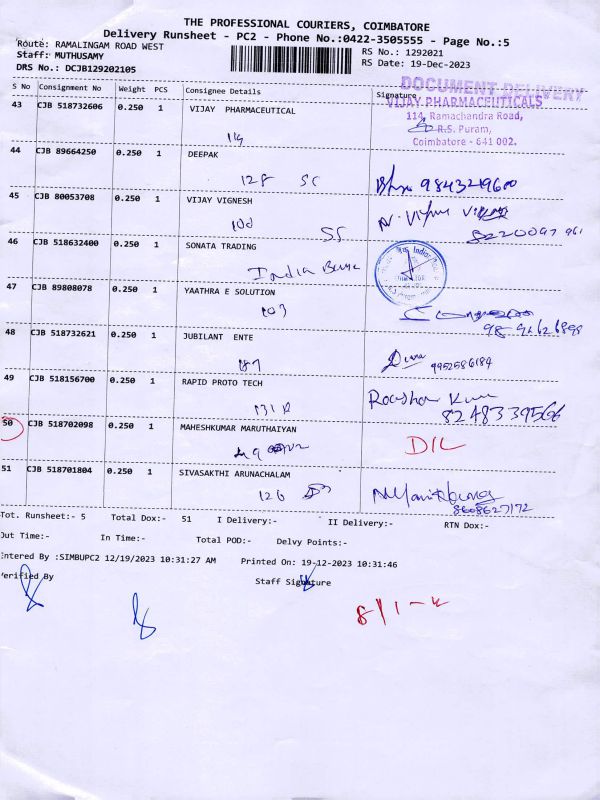 THE PROFESSIONAL COURIERS, COIMBATORE
Delivery Runsheet - PC2 - Phone No.:0422-3505555 - Page No.:5
Route: RAMALINGAM ROAD WEST
Staff: MUTHUSAMY
DRS No.: DCJB129202105
RS No.: 1292021
RS Date: 19-Dec-2023
S No Consignment No Weight PCS Consignee Details Signature
DOCUMENT DELIVERY
43 CJB 518732606 0.250 1 VIJAY PHARMACEUTICAL
VIJAY PHARMACEUTICALS
114, Ramachandra Road,
R.S. Puram,
Coimbatore - 641 002.
114
44 CJB 89664250 0.250 1 DEEPAK
128 SC
9843249600
45 CJB 80053708 0.250 1 VIJAY VIGNESH
100 SS
8220097961
46 CJB 518632400 0.250 1 SONATA TRADING
India
47 CJB 89808078 0.250 1 YAATHRA E SOLUTION
103
48 CJB 518732621 0.250 1 JUBILANT ENTE
187
9952586184
49 CJB 518156700 0.250 1 RAPID PROTO TECH
131
8248339566
50 CJB 518702098 0.250 1 MAHESHKUMAR MARUTHAIYAN
DIL
51 CJB 518701804 0.250 1 SIVASAKTHI ARUNACHALAM
126
8608627172
Tot. Runsheet:- 5 Total Dox:- 51 I Delivery:- II Delivery:- RTN Dox:-
Out Time:- In Time:- Total POD:- Delvy Points:-
Entered By :SIMBUPC2 12/19/2023 10:31:27 AM Printed On: 19-12-2023 10:31:46
Verified By Staff Signature